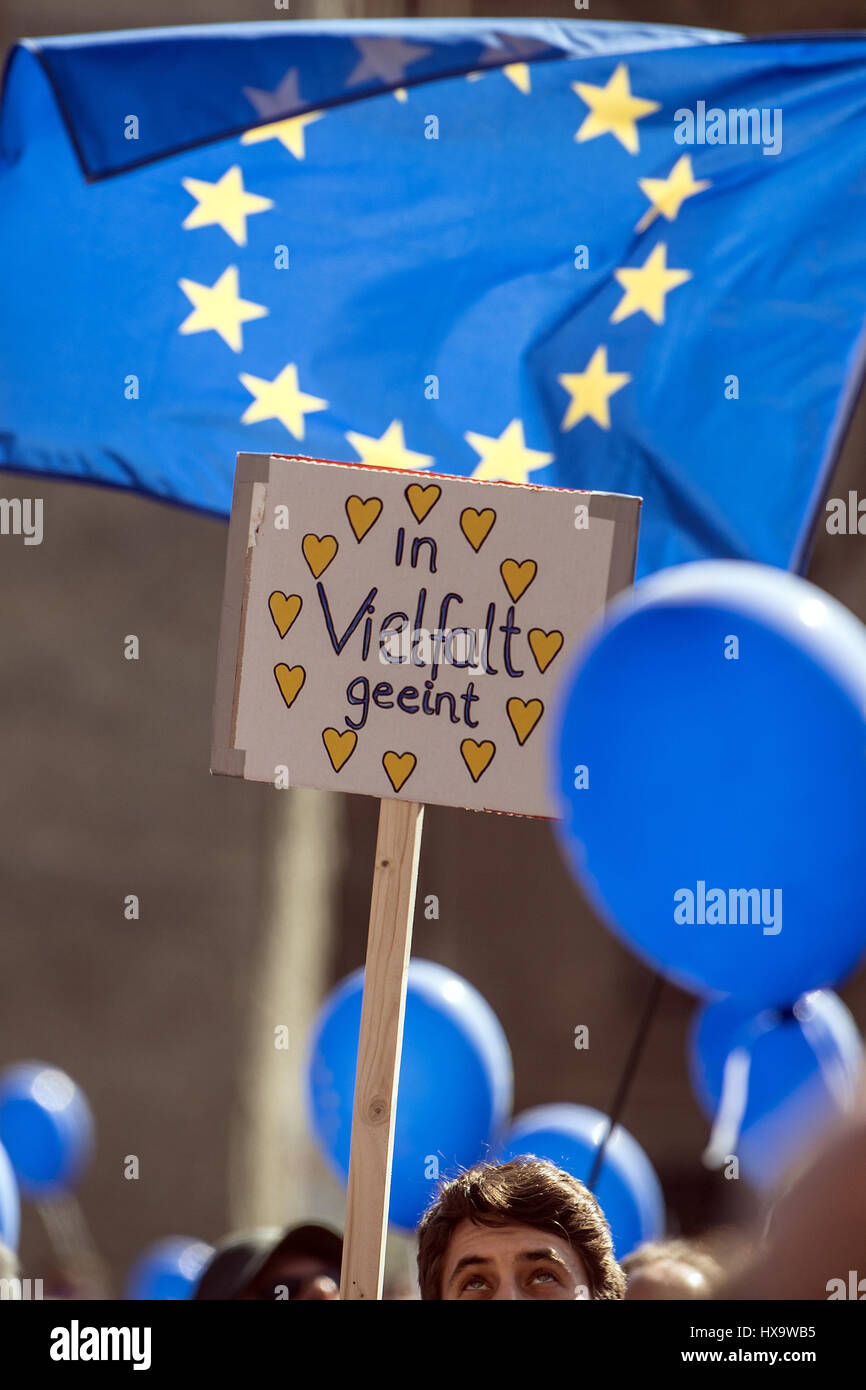 in
Vielfalt
geeint
alamy
alamy
Image ID: HX9WB5
www.alamy.com